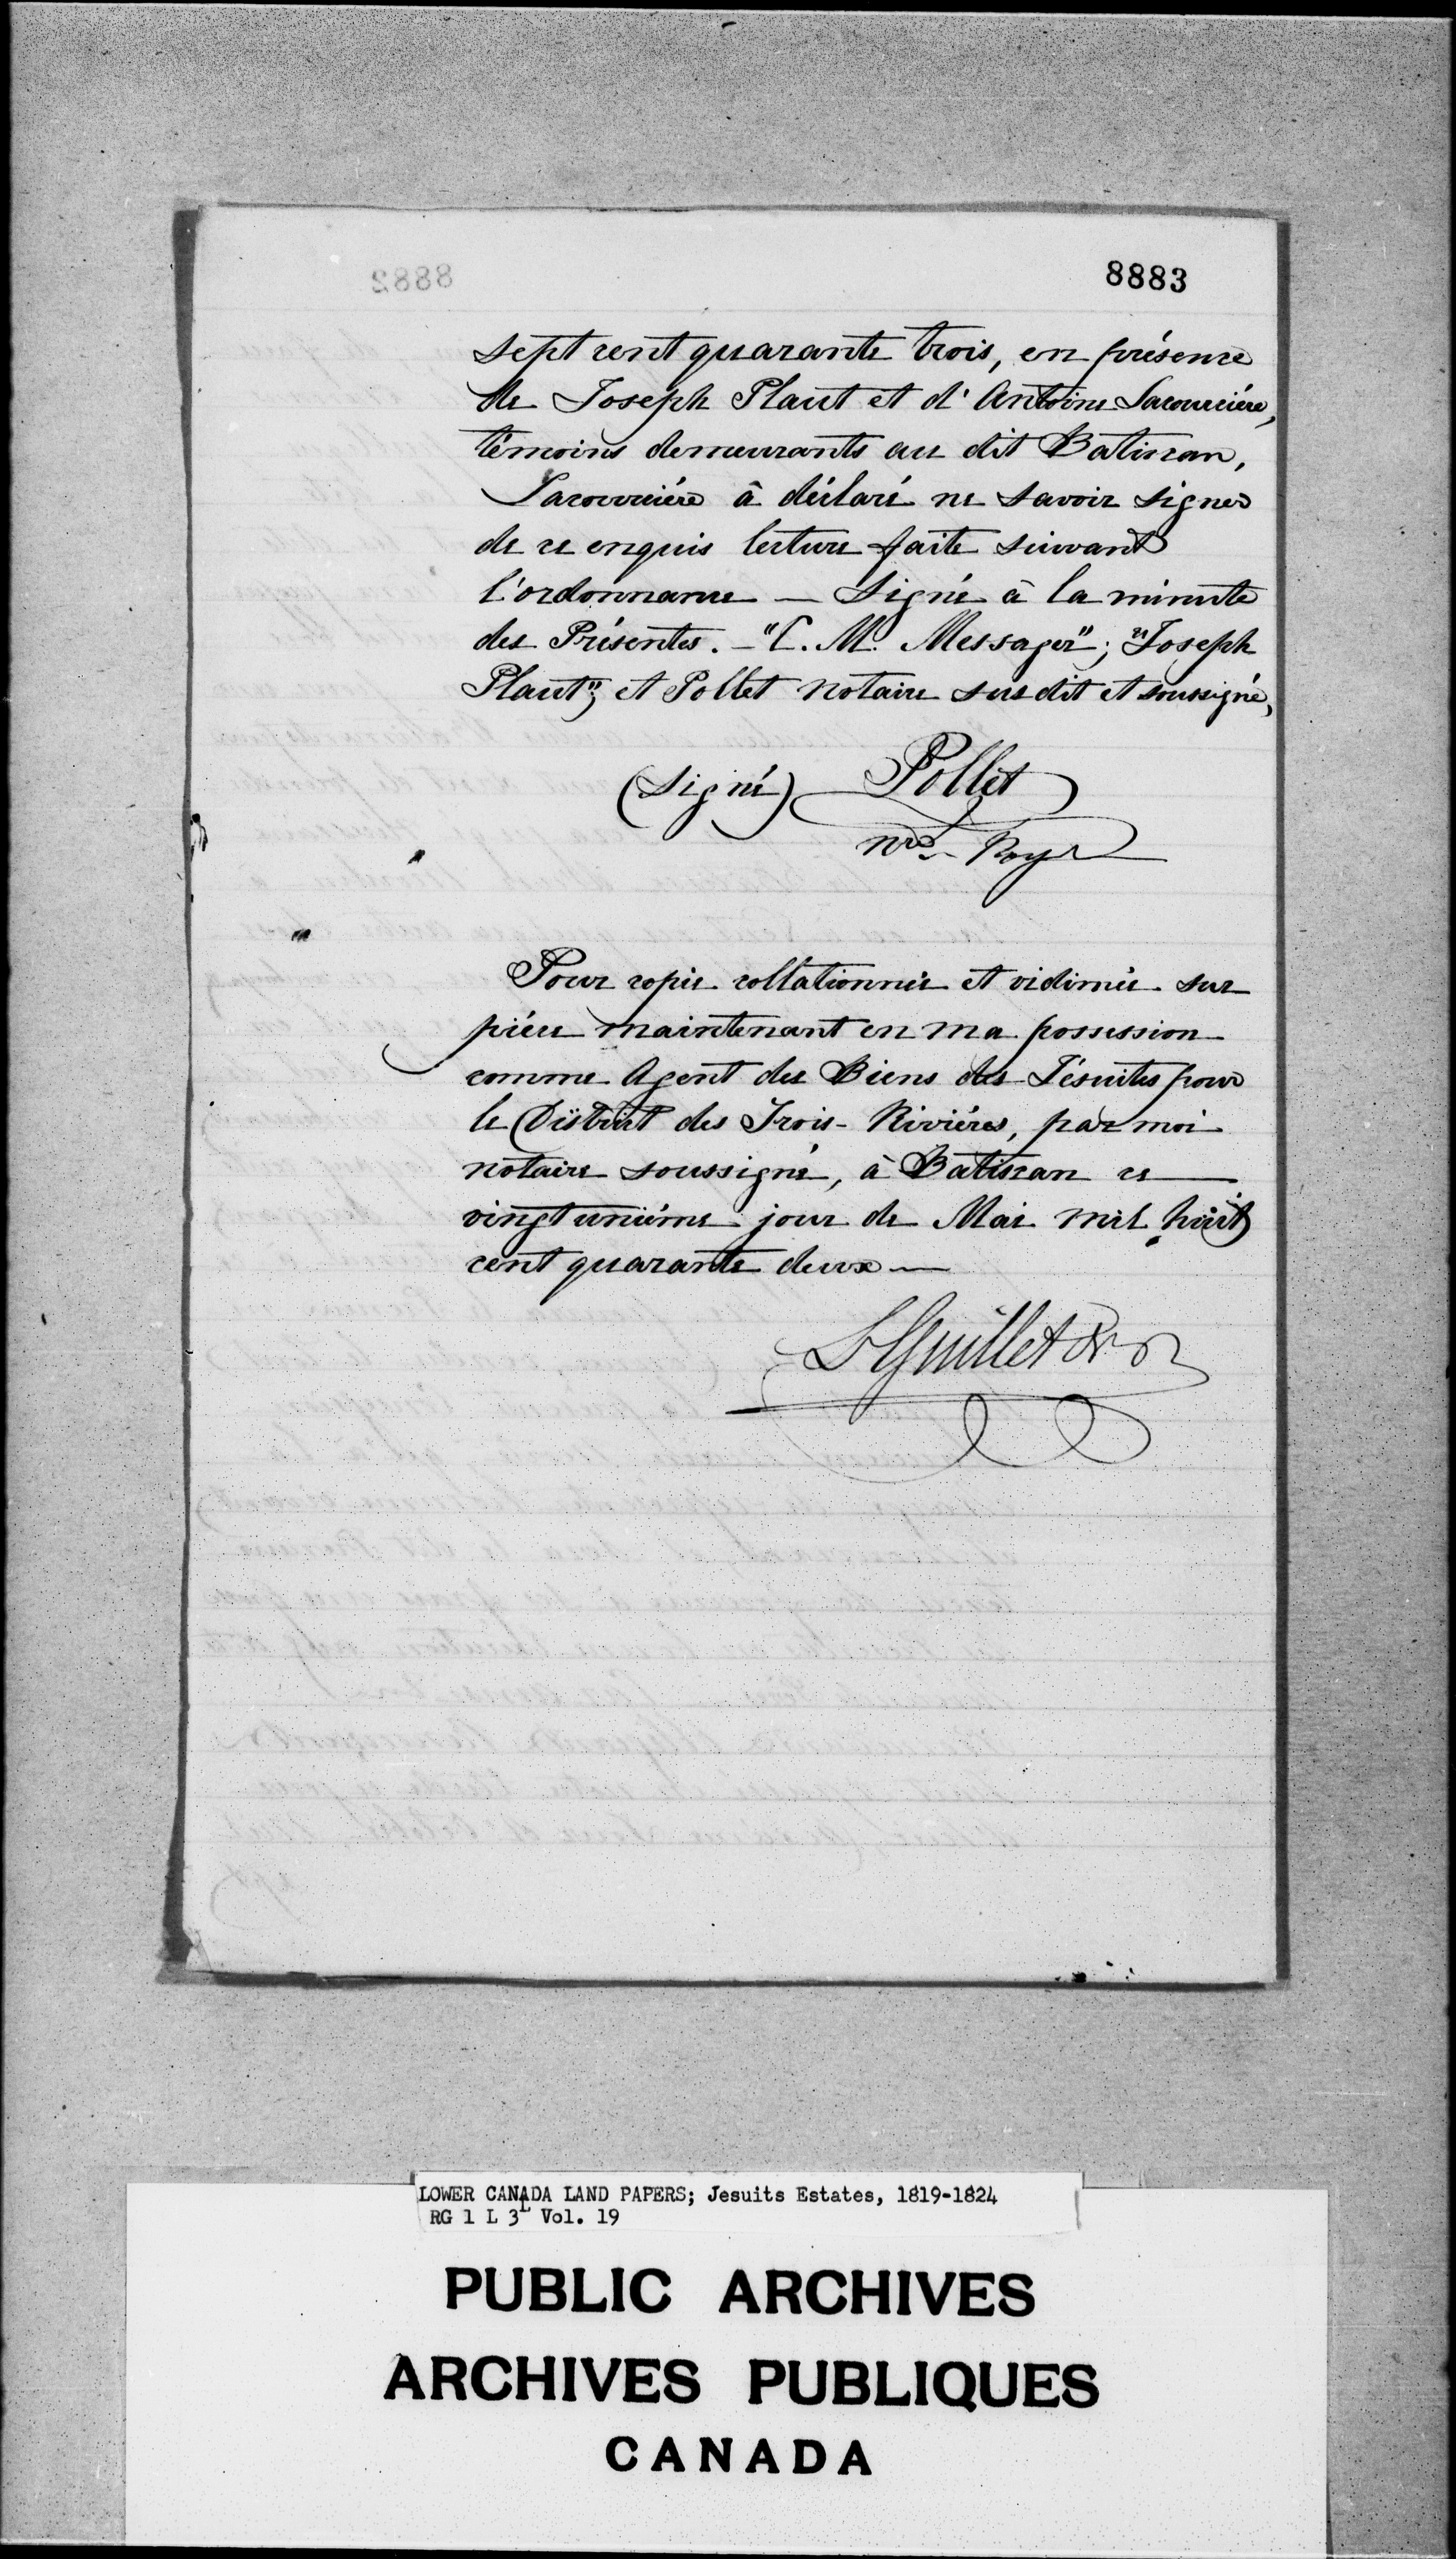 8883
sept cent quarante trois, en présence
de Joseph Plaut et d'Antoine Lacourcière,
témoins demeurants au dit Batiscan,
Lacourcière à déclaré ne savoir signer
de ce enquis lecture faite suivant
l'ordonnance — Signé à la minute
des Présentes. — "C. M. Messager"; "Joseph
Plaut"; et Pollet Notaire susdit et soussigné,
(Signé) Pollet
Nre. Royl
Pour copie collationnée et vidimée sur
pièce maintenant en ma possession
comme Agent des Biens des Jésuites pour
le District des Trois-Rivières, par moi
notaire soussigné, à Batiscan ce
vingt unième jour de Mai mil huit
cent quarante deux —
L Guillet
LOWER CANADA LAND PAPERS; Jesuits Estates, 1819-1824
RG 1 L 3L Vol. 19
PUBLIC ARCHIVES
ARCHIVES PUBLIQUES
CANADA